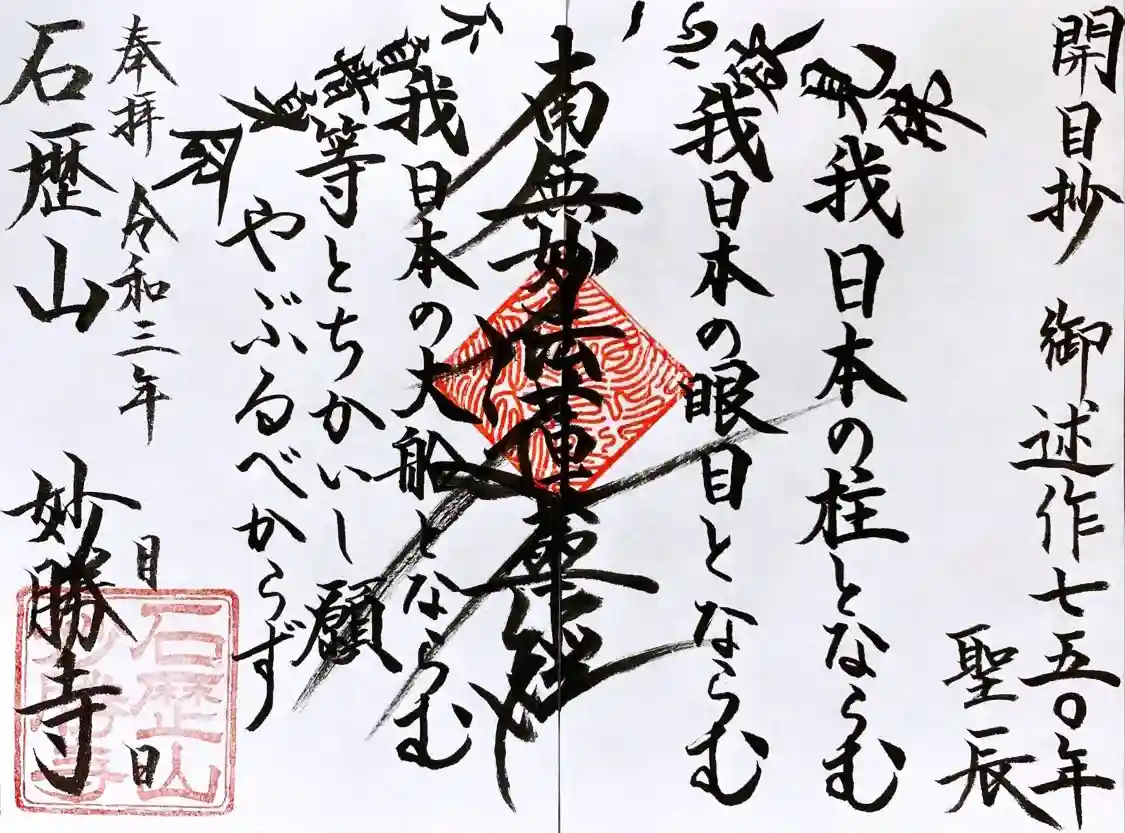 開目抄 御述作七五〇年
聖辰
我日本の柱とならむ
我日本の眼目とならむ
南無妙法蓮華經
我日本の大船とならむ
等とちかいし願
やぶるべからず
奉拝 令和三年 月 日
石歴山 妙勝寺
石歴山
妙勝寺